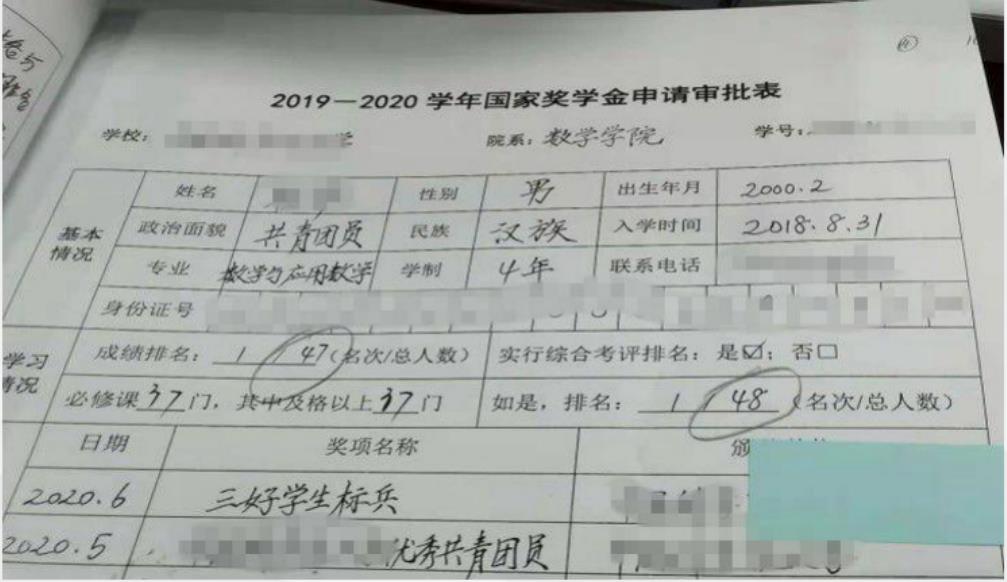 2019-2020 学年国家奖学金申请审批表
学校: 学 院系: 数学学院 学号:
基本情况
姓名 性别 男 出生年月 2000.2
政治面貌 共青团员 民族 汉族 入学时间 2018.8.31
专业 数学与应用数学 学制 4年 联系电话
身份证号
学习情况
成绩排名: 1 / 47 (名次/总人数) 实行综合考评排名: 是☑; 否☐
必修课 37 门, 其中及格以上 37 门 如是, 排名: 1 / 48 (名次/总人数)
日期 奖项名称 颁
2020.6 三好学生标兵
2020.5 优秀共青团员